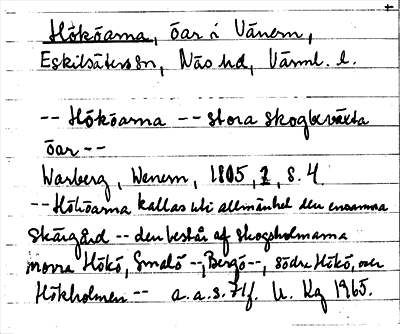 Hököarna, öar i Vänern,
Eskilsäters sn, Näs hd, Värml. l.
-- Hököarna -- stora skogbeväxta
öar --
Warberg, Wenern, 1805, 2, s. 4.
-- Hököarna kallas uti allmänhet den ensamma
Skärgård -- den består af Skogsholmarna
norra Hökö, Smalö --, Bergö --, södra Hökö,
Hökholmen -- a.a.s. 71f. U. Kg 1965.